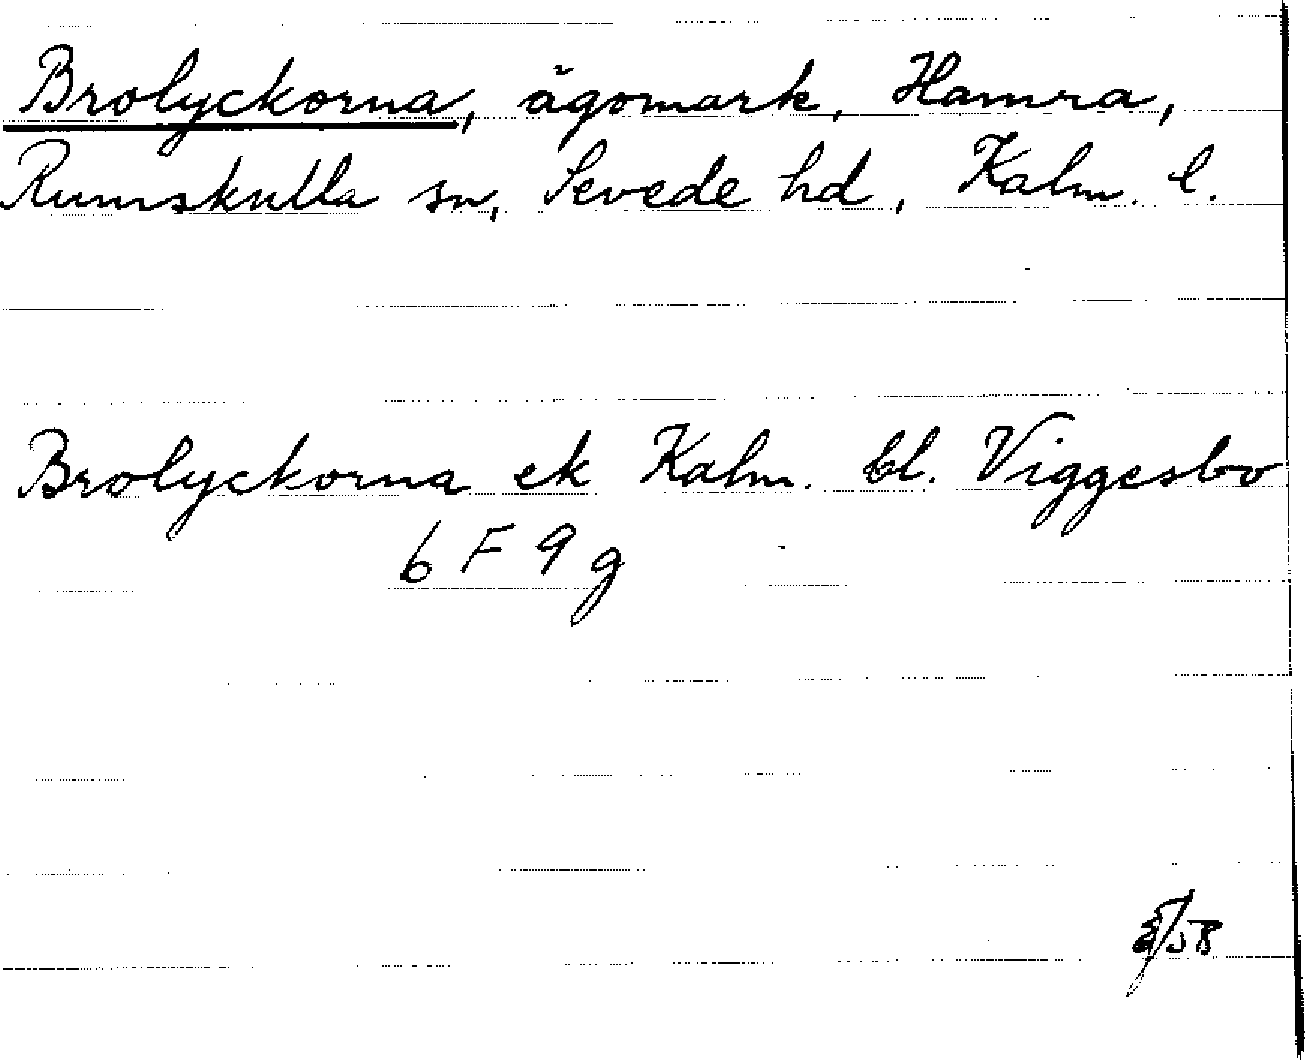 Brolyckorna, ägomark, Hamra,
Rumskulla sn, Sevede hd, Kalm. l.
Brolyckorna ek Kalm. bl. Viggesbo
6 F 9 g